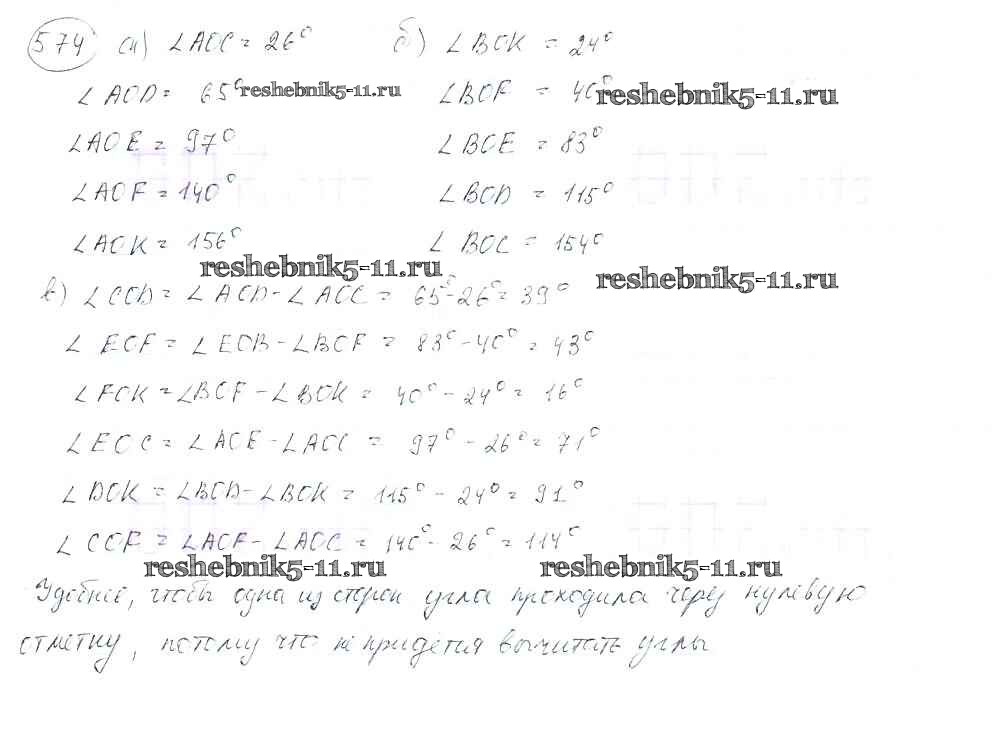 574 а) ∠AOC = 26° б) ∠BOK = 24°
∠AOD = 65° reshebnik5-11.ru ∠BOF = 40° reshebnik5-11.ru
∠AOE = 97° ∠BOE = 83°
∠AOF = 140° ∠BOD = 115°
∠AOK = 156° ∠BOC = 154°
reshebnik5-11.ru reshebnik5-11.ru
в) ∠COD = ∠AOD - ∠AOC = 65° - 26° = 39°
∠EOF = ∠EOB - ∠BOF = 83° - 40° = 43°
∠FOK = ∠BOF - ∠BOK = 40° - 24° = 16°
∠EOC = ∠AOE - ∠AOC = 97° - 26° = 71°
∠DOK = ∠BOD - ∠BOK = 115° - 24° = 91°
∠COF = ∠AOF - ∠AOC = 140° - 26° = 114°
reshebnik5-11.ru reshebnik5-11.ru
Удобнее, чтобы одна из сторон угла проходила через нулевую
отметку, потому что не придётся вычитать углы